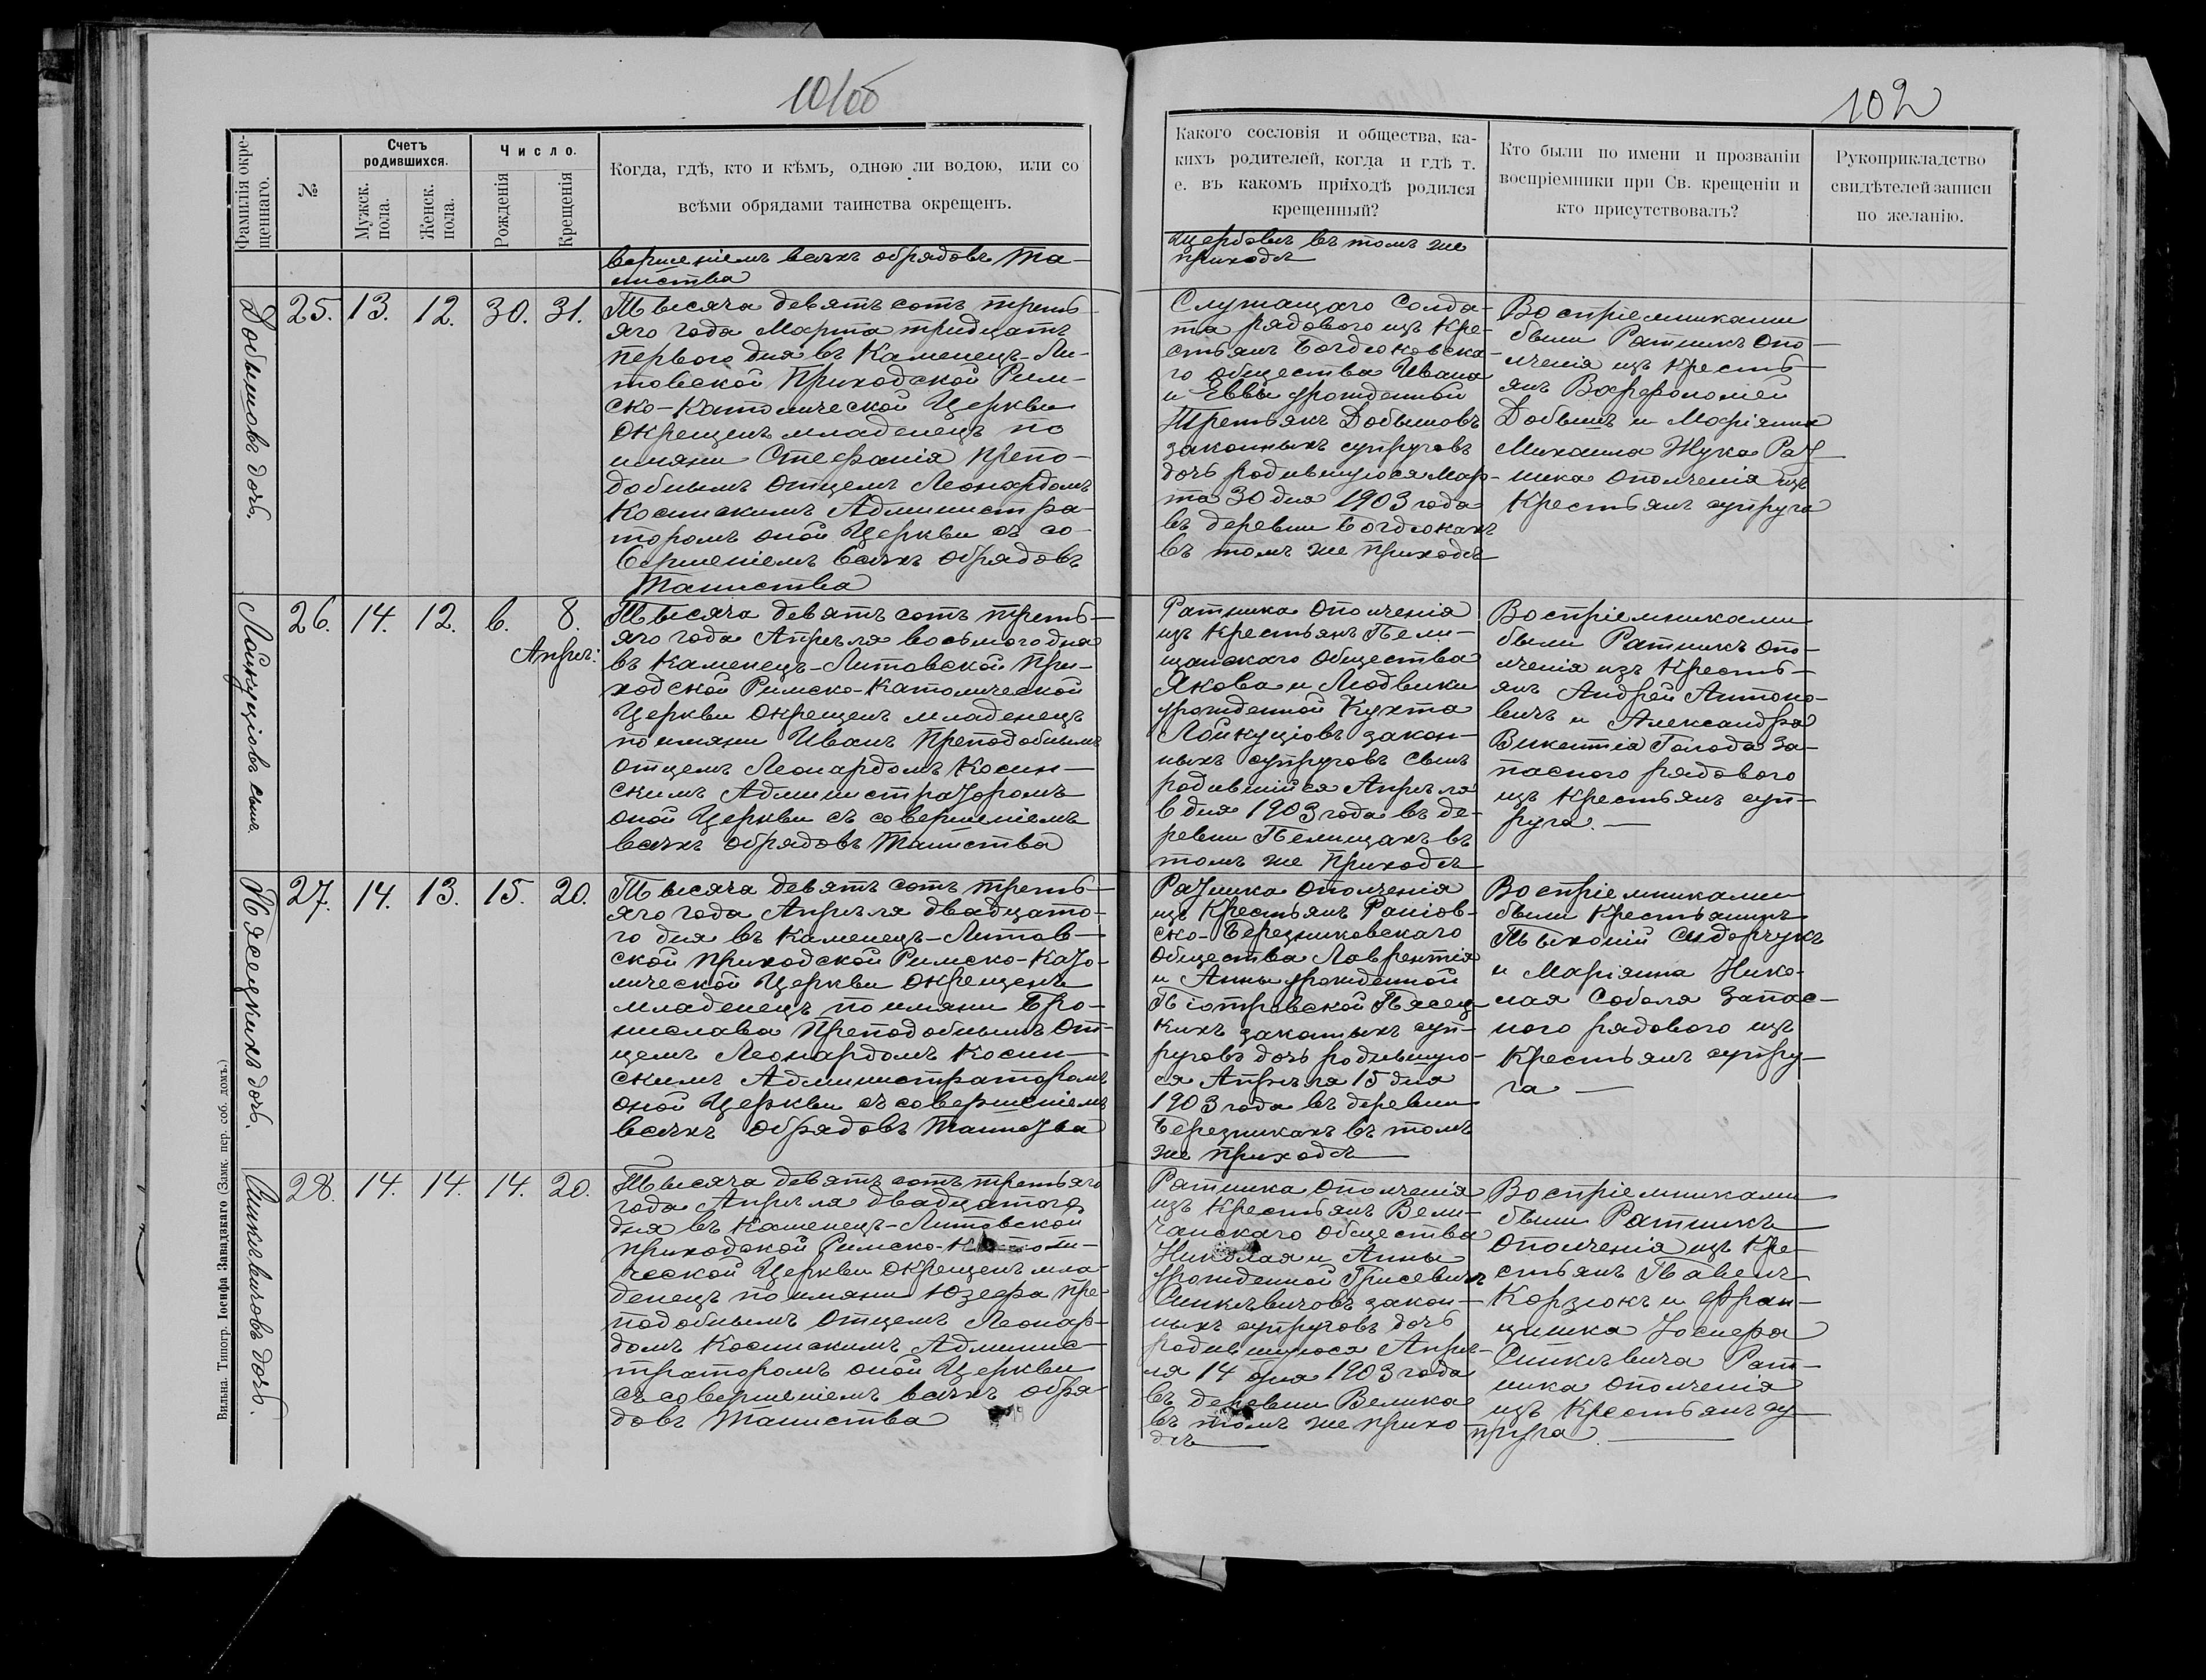 101об
102
Фамилія окре-
щеннаго.
№
Счетъ
родившихся.
Мужск.
пола.
Женск.
пола.
Число.
Рожденія
Крещенія
Когда, гдѣ, кто и кѣмъ, одною ли водою, или со
всѣми обрядами таинства окрещенъ.
Какого сословія и общества, ка-
кихъ родителей, когда и гдѣ т.
е. въ какомъ приходѣ родился
крещенный?
Кто были по имени и прозваніи
воспріемники при Св. крещеніи и
кто присутствовалъ?
Рукоприкладство
свидѣтелей записи
по желанію.
вершеніемъ всѣхъ обрядовъ Та-
инства
щербовъ въ томъ же
приходѣ
Добышовъ дочь.
25. 13. 12. 30. 31.
Тысяча девятьсотъ треть-
яго года Марта тридцать
перваго дня въ Каменецъ-Ли-
товской Приходской Рим-
ско-Католической Церкви
окрещенъ младенецъ по
имяни Стефанія Препо-
добнымъ Отцемъ Леонардомъ
Косинскимъ Администра-
торомъ оной Церкви съ со-
вершеніемъ всѣхъ обрядовъ
Таинства
Служащаго Солда-
та рядового изъ Кре-
стьянъ Богдюковска-
го общества Ивана
и Еввы урожденный
Третьякъ Добышовъ
законныхъ супруговъ
дочь родившуюся Мар-
та 30 дня 1903 года
въ деревни Богдюкахъ
въ томъ же приходѣ
Воспріемниками
были Ратникъ опо-
лченія изъ Кресть-
янъ Варфоломей
Добышъ и Маріянна
Михаила Жука Рат-
ника ополченія изъ
Крестьянъ супруга
Лойкуціовъ сынъ.
26. 14. 12. 6. 8.
Апрѣ:
Тысяча девятьсотъ треть-
яго года Апрѣля восьмого дня
въ Каменецъ-Литовской При-
ходской Римско-Католической
Церкви окрещенъ младенецъ
по имяни Иванъ Преподобнымъ
Отцемъ Леонардомъ Косин-
скимъ Администраторомъ
оной Церкви съ совершеніемъ
всѣхъ обрядовъ Таинства
Ратника ополченія
изъ Крестьянъ Пели-
щанскаго Общества
Якова и Людвики
урожденной Кухта
Лойкуціовъ закон-
ныхъ супруговъ сынъ
родившійся Апрѣля
6 дня 1903 года въ де-
ревни Пелищахъ въ
томъ же Приходѣ
Воспріемниками
были Ратникъ опо-
лченія изъ Кресть-
янъ Андрей Антоно-
вичъ и Александра
Викентія Голода за-
паснаго рядового
изъ Крестьянъ суп-
руга. —
Пясецкихъ дочь.
27. 14. 13. 15. 20.
Тысяча девятьсотъ треть-
яго года Апрѣля двадцато-
го дня въ Каменецъ-Литов-
ской приходской Римско-Като-
лической Церкви окрещенъ
младенецъ по имяни Бро-
нислава Преподобнымъ От-
цемъ Леонардомъ Косин-
скимъ Администраторомъ
оной Церкви съ совершеніемъ
всѣхъ обрядовъ Таинства
Ратника ополченія
изъ Крестьянъ
ско-Березниковскаго
Общества Лаврентія
и Анны урожденной
Піотровской Пясец-
кихъ законныхъ суп-
руговъ дочь родившую-
ся Апрѣля 15 дня
1903 года въ деревни
Березникахъ въ томъ
же приходѣ —
Воспріемниками
были Крестьянинъ
Сидорчукъ
и Маріянна Нико-
лая Соболя Запас-
ного рядового изъ
Крестьянъ супру-
га —
Синкѣвичовъ дочь.
28. 14. 14. 14. 20.
Тысяча девятьсотъ третьяго
года Апрѣля двадцатого
дня въ Каменецъ-Литовской
приходской Римско-Католи-
ческой Церкви окрещенъ мла-
денецъ по имяни Юзефа Пре-
подобнымъ Отцемъ Леонар-
домъ Косинскимъ Админис-
траторомъ оной Церкви
съ совершеніемъ всѣхъ обря-
довъ Таинства
Ратника ополченія
изъ Крестьянъ Вели-
чанскаго Общества
Николая и Анны
урожденной Грисевичъ
Синкѣвичовъ закон-
ныхъ супруговъ дочь
родившуюся Апрѣ-
ля 14 дня 1903 года
въ деревни Велика
въ томъ же прихо-
дѣ —
Воспріемниками
были Ратникъ
ополченія изъ Кре-
стьянъ Павелъ
Корзюкъ и Фран-
цишка
Синкѣвича Рат-
ника ополченія
изъ Крестьянъ су-
пруга. —
Вильна. Типогр. Іосифа Завадзкаго (Замк. пер. соб. домъ.)